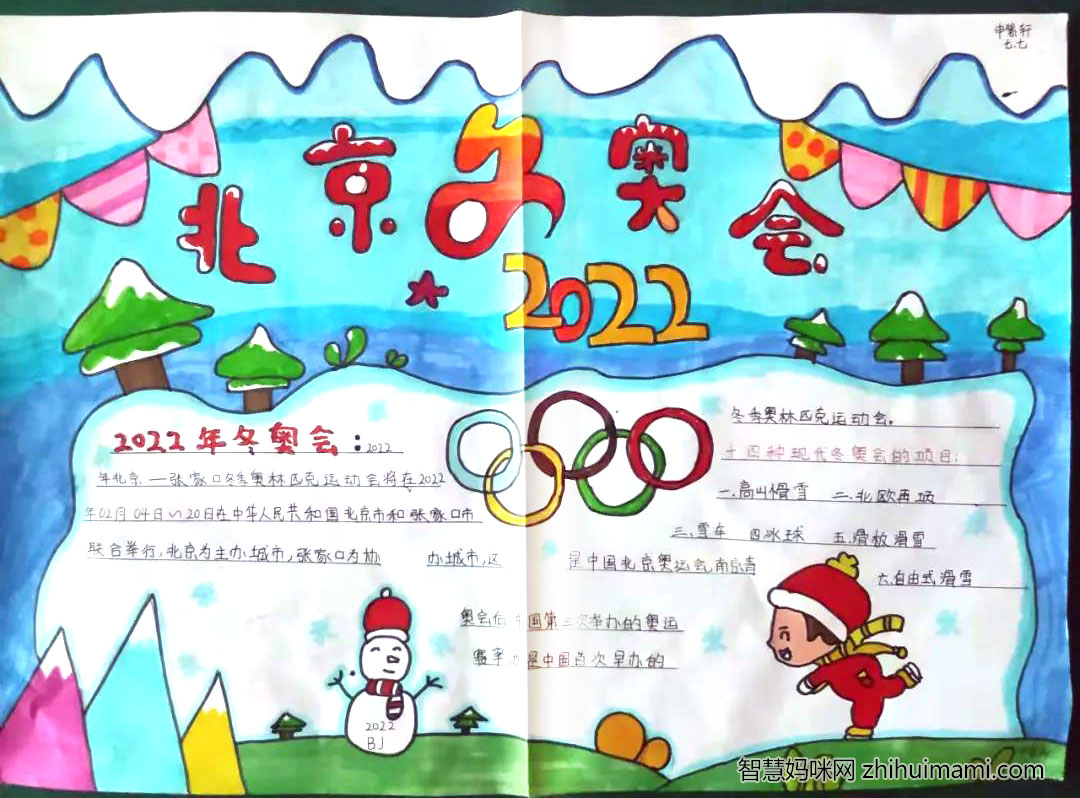 申紫轩
七.七
北京冬奥会
2022
2022年冬奥会：2022
年北京—张家口冬季奥林匹克运动会将在2022
年02月04日～20日在中华人民共和国北京市和张家口市
联合举行,北京为主办城市,张家口为协 办城市,这
是中国北京奥运会,南京青
奥会后中国第三次举办的奥运
赛事,也是中国首次举办的
冬季奥林匹克运动会。
十四种现代冬奥会的项目:
一.高山滑雪 二.北欧两项
三.雪车 四冰球 五.滑板滑雪
六.自由式滑雪
2022
BJ
智慧妈咪网 zhihuimami.com